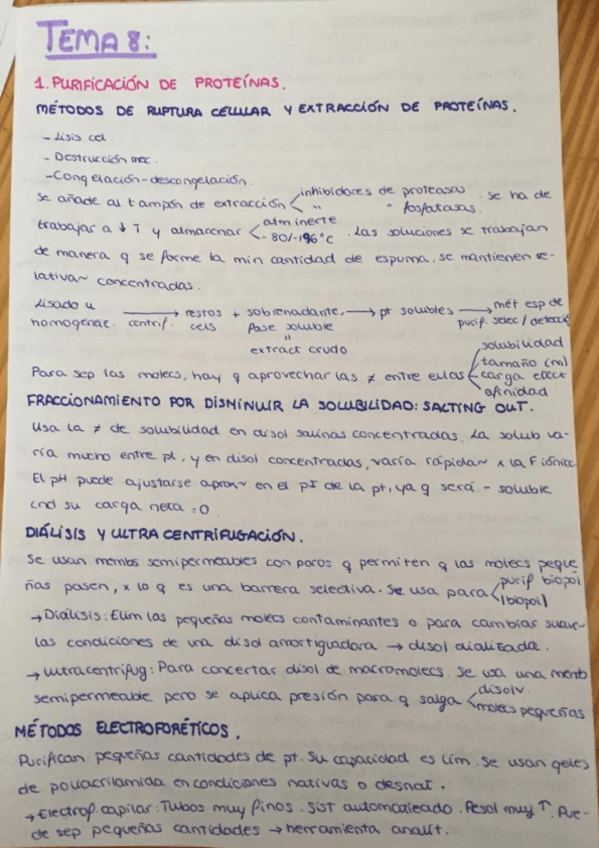 TEMA 8:
1. PURIFICACIÓN DE PROTEÍNAS.
MÉTODOS DE RUPTURA CELULAR Y EXTRACCIÓN DE PROTEÍNAS.
- Lisis cel.
- Destrucción mec.
- Congelación-descongelación.
Se añade al tampón de extracción < inhibidores de proteasas . Se ha de
" " fosfatasas.
trabajar a ↓ T y almacenar < atm inerte
- 80/-196°C . Las soluciones se trabajan
de manera q se forme la min cantidad de espuma. se mantienen re-
lativa~ concentradas.
Lisado u → restos + sobrenadante, → pt solubles → mét esp de
homogenic. centrif. cels fase soluble purif. selec/detecció
"
extract crudo
Para sep las molecs, hay q aprovechar las ≠ entre ellas < solubilidad
tamaño (m)
carga eléct
afinidad
FRACCIONAMIENTO POR DISMINUIR LA SOLUBILIDAD: SALTING OUT.
Usa la ≠ de solubilidad en disol salinas concentradas. La solub va-
ría mucho entre pt, y en disol concentradas, varía rápida~ x la F iónica
El pH puede ajustarse aprox~ en el pI de la pt, ya q será - soluble
cnd su carga neta = 0.
DIÁLISIS Y ULTRA CENTRIFUGACIÓN.
Se usan membs semipermeables con poros q permiten q las molecs peque
ñas pasen, x lo q es una barrera selectiva. Se usa para < purif biopol
[biopol]
→ Diálisis: Elim las pequeñas molecs contaminantes o para cambiar suave~
las condiciones de una disol amortiguadora → disol dializada.
→ Ultracentrifug: Para concertar disol de macromolecs. Se usa una memb
semipermeable pero se aplica presión para q salga < disolv.
molecs pequeñas
MÉTODOS ELECTROFORÉTICOS.
Purifican pequeñas cantidades de pt. Su capacidad es lim. Se usan geles
de poliacrilamida en condiciones nativas o desnat.
→ Electrof capilar: Tubos muy finos. Sist automatizado. Resol muy ↑. Pue-
de sep pequeñas cantidades → herramienta analít.